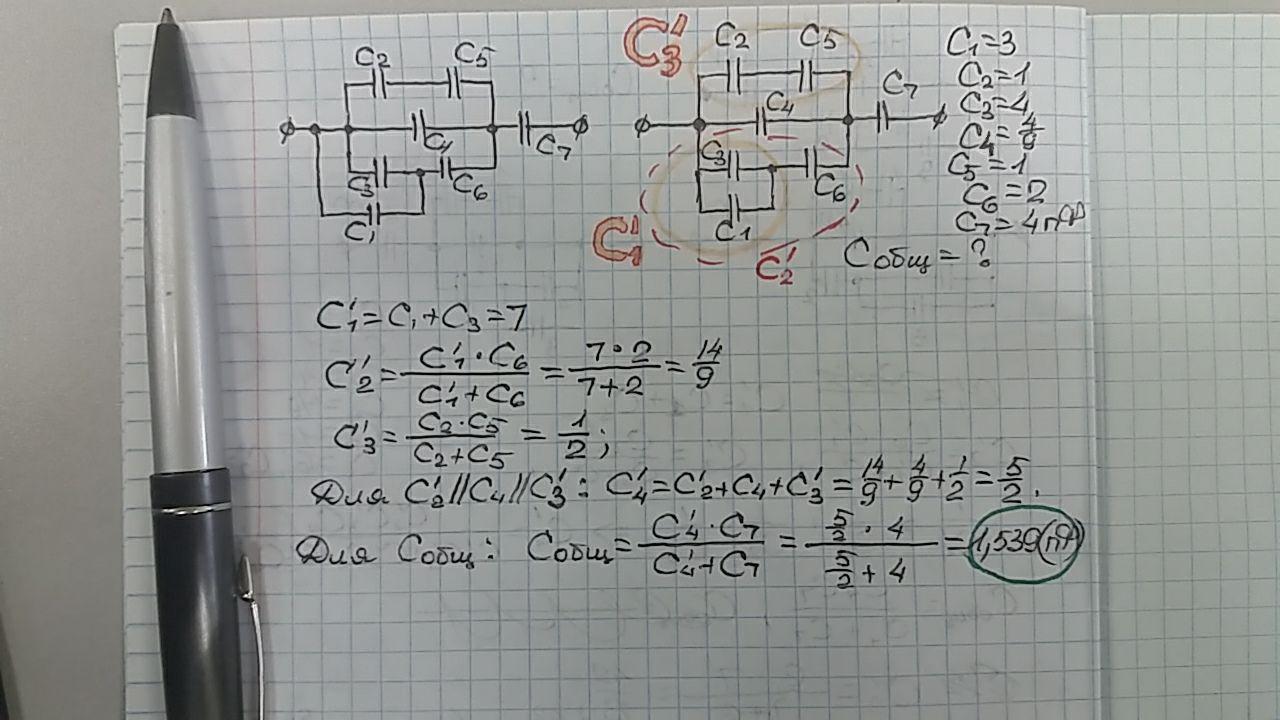 C2 C5
C4
C7
C3 C6
C1
C'3 C2 C5
C4 C7
C3 C6
C'1 C1
C'2
C1=3
C2=1
C3=4
C4=4/9
C5=1
C6=2
C7=4пФ
Cобщ=?
C'1=C1+C3=7
C'2=C'1·C6/C'1+C6=7·2/7+2=14/9
C'3=C2·C5/C2+C5=1/2;
Для C'2//C4//C'3: C'4=C'2+C4+C'3=14/9+4/9+1/2=5/2.
Для Cобщ: Cобщ=C'4·C7/C'4+C7=5/2·4/5/2+4=1,539(пФ)